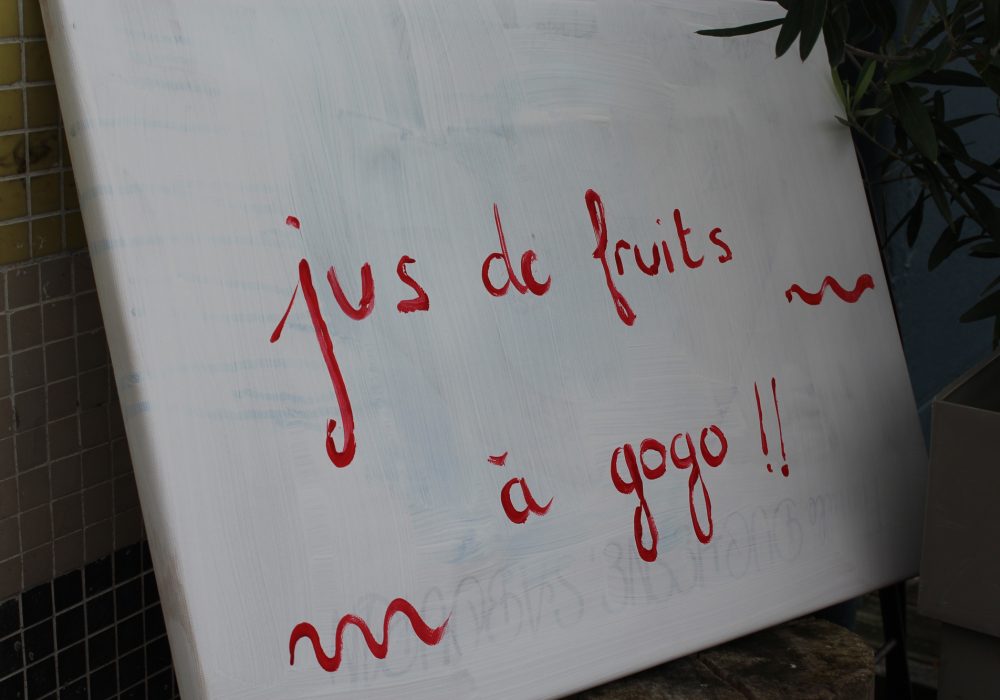 jus de fruits
à gogo !!